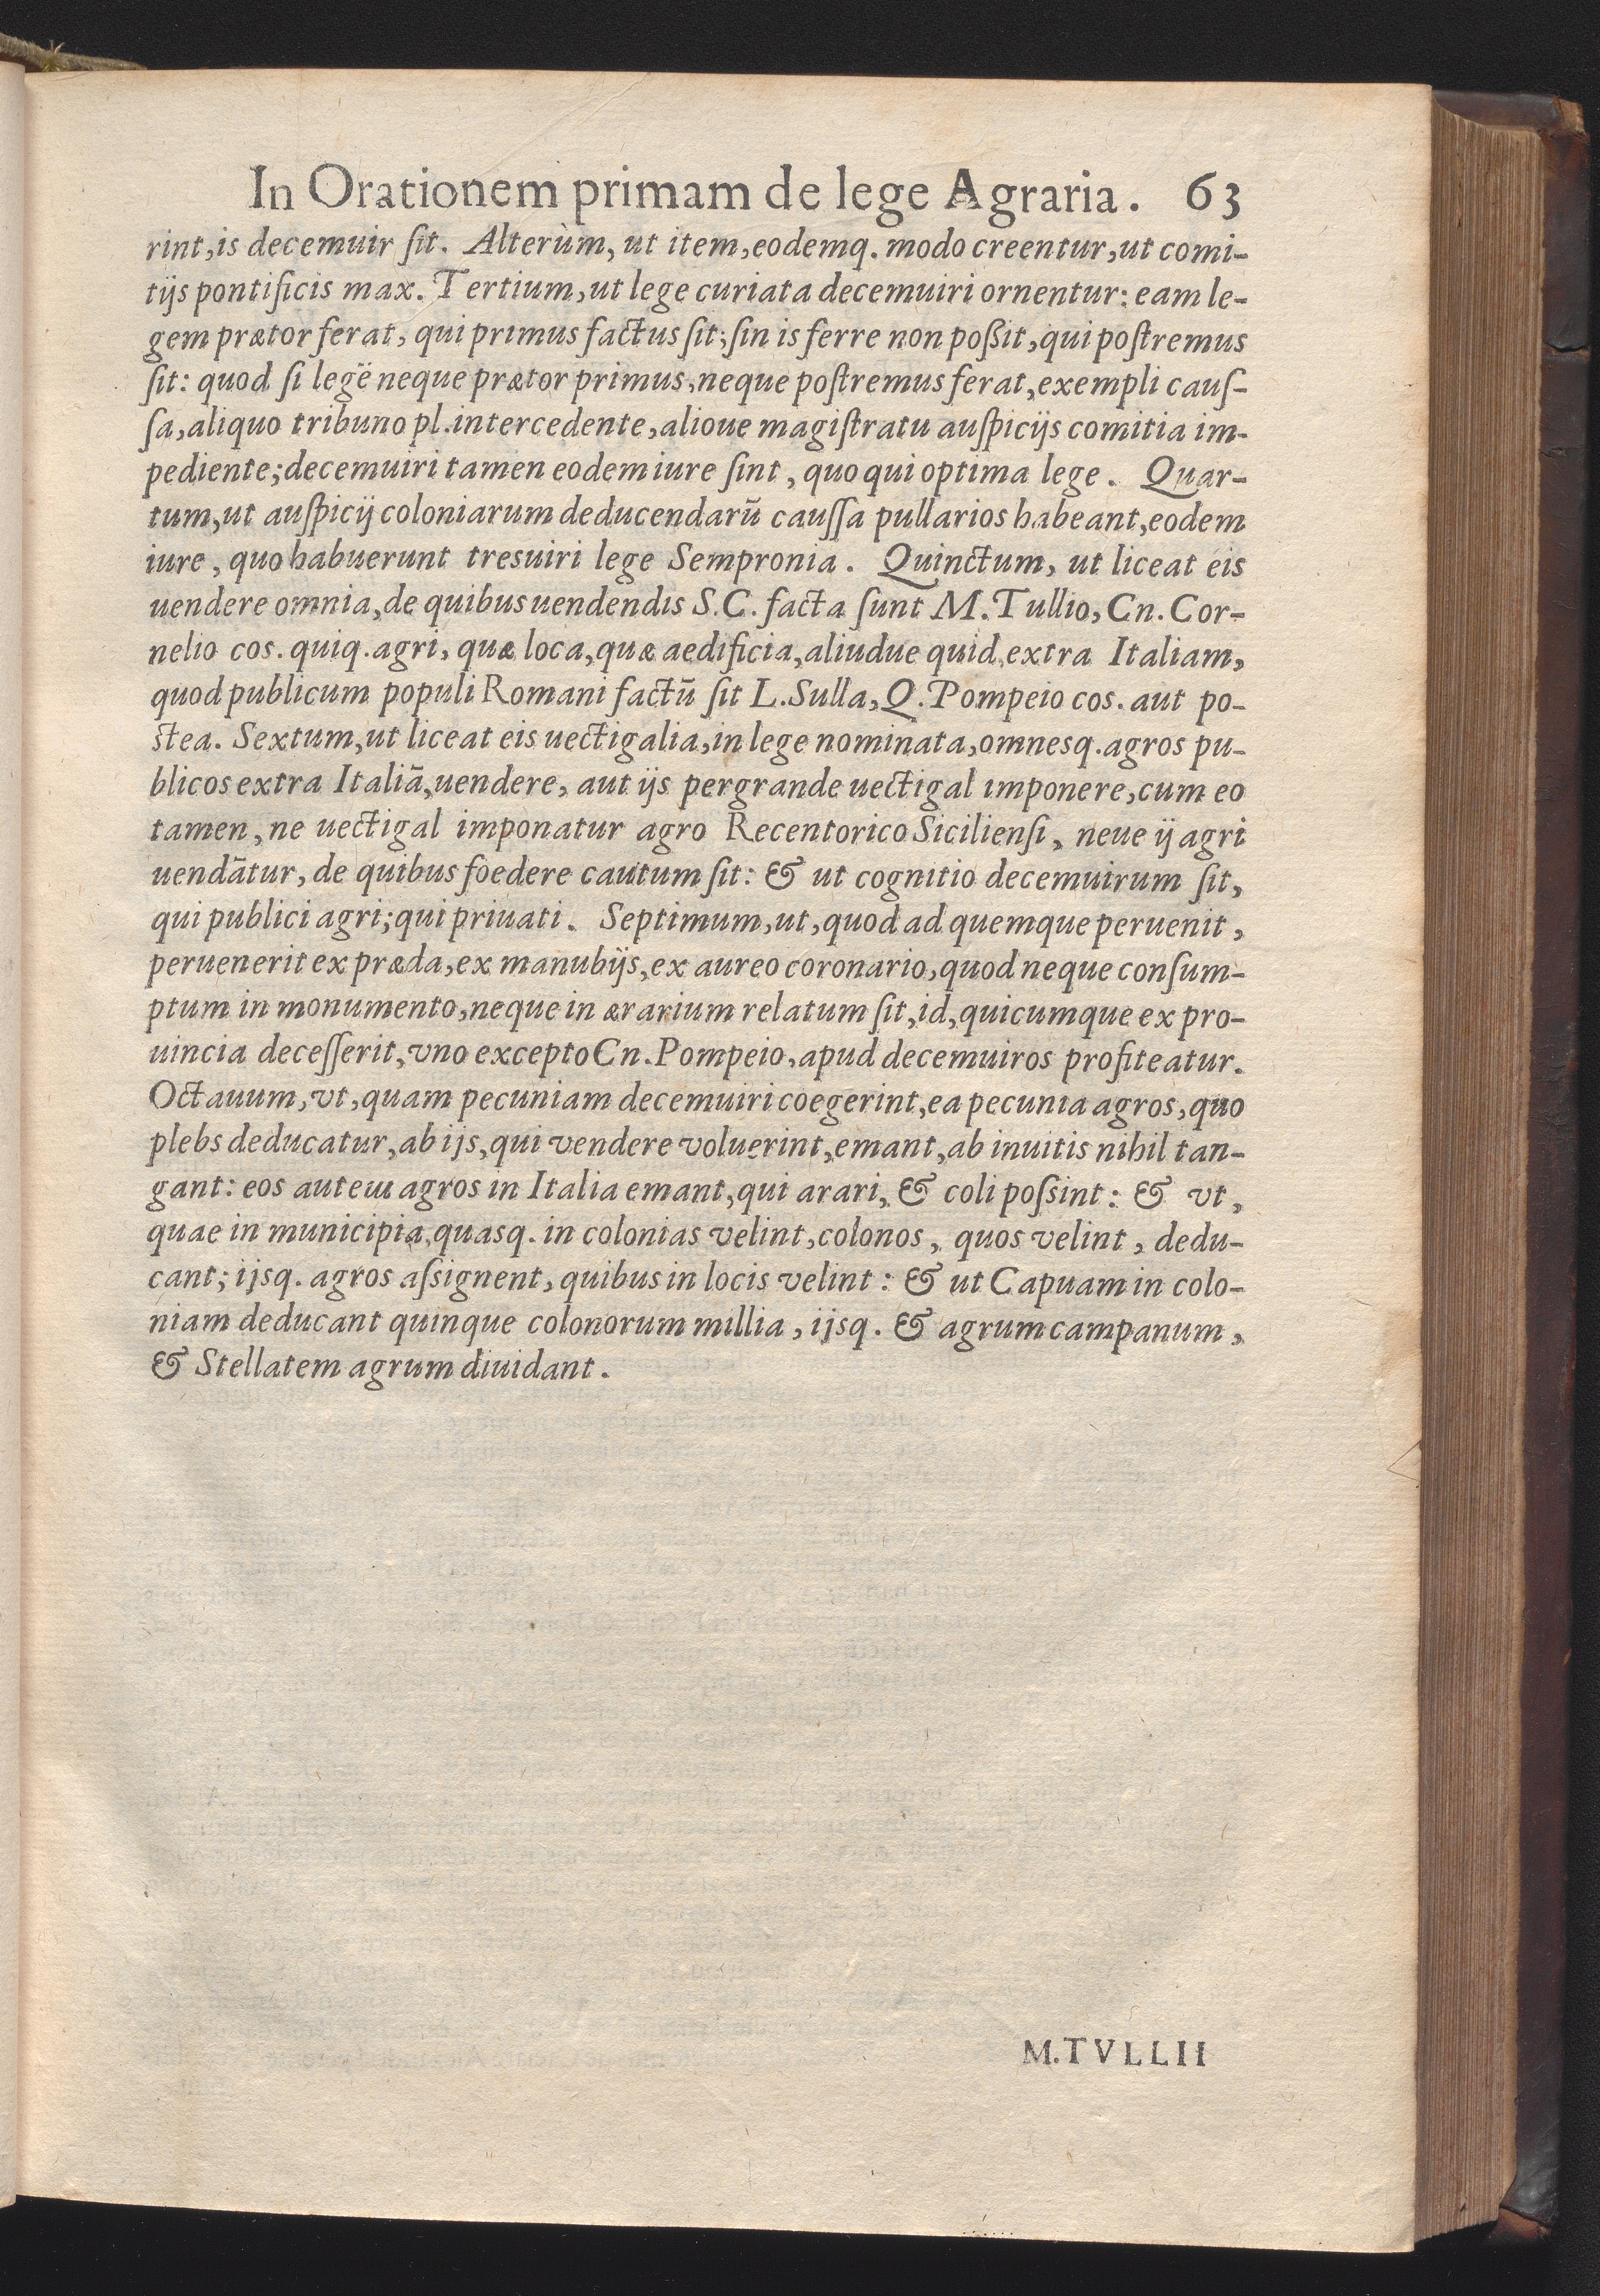 In Orationem primam de lege Agraria. 63
rint, is decemuir ſit. Alterùm, ut item, eodemq. modo creentur, ut comi-
tijs pontificis max. Tertium, ut lege curiata decemuiri ornentur: eam le-
gem prætor ferat, qui primus factus ſit; ſin is ferre non poßit, qui poſtremus
ſit: quod ſi legē neque prætor primus, neque poſtremus ferat, exempli cauſ-
ſa, aliquo tribuno pl. intercedente, alioue magiſtratu auſpicijs comitia im-
pediente; decemuiri tamen eodem iure ſint, quo qui optima lege. Quar-
tum, ut auſpicij coloniarum deducendarū cauſſa pullarios habeant, eodem
iure, quo habuerunt tresuiri lege Sempronia. Quinctum, ut liceat eis
uendere omnia, de quibus uendendis S.C. facta ſunt M. Tullio, Cn. Cor-
nelio cos. quiq. agri, quæ loca, quæ aedificia, aliudue quid, extra Italiam,
quod publicum populi Romani factū ſit L. Sulla, Q. Pompeio cos. aut po-
ſtea. Sextum, ut liceat eis uectigalia, in lege nominata, omnesq. agros pu-
blicos extra Italiā, uendere, aut ijs pergrande uectigal imponere, cum eo
tamen, ne uectigal imponatur agro Recentorico Sicilienſi, neue ij agri
uendātur, de quibus foedere cautum ſit: & ut cognitio decemuirum ſit,
qui publici agri; qui priuati. Septimum, ut, quod ad quemque peruenit,
peruenerit ex præda, ex manubijs, ex aureo coronario, quod neque conſum-
ptum in monumento, neque in ærarium relatum ſit, id, quicumque ex pro-
uincia deceſſerit, vno excepto Cn. Pompeio, apud decemuiros profiteatur.
Octauum, vt, quam pecuniam decemuiri coegerint, ea pecunia agros, quo
plebs deducatur, ab ijs, qui vendere voluerint, emant, ab inuitis nihil tan-
gant: eos autem agros in Italia emant, qui arari, & coli poſsint: & vt,
quae in municipia, quasq. in colonias velint, colonos, quos velint, dedu-
cant; ijsq. agros aſsignent, quibus in locis velint: & ut Capuam in colo-
niam deducant quinque colonorum millia, ijsq. & agrum campanum,
& Stellatem agrum diuidant.
M. TVLLII